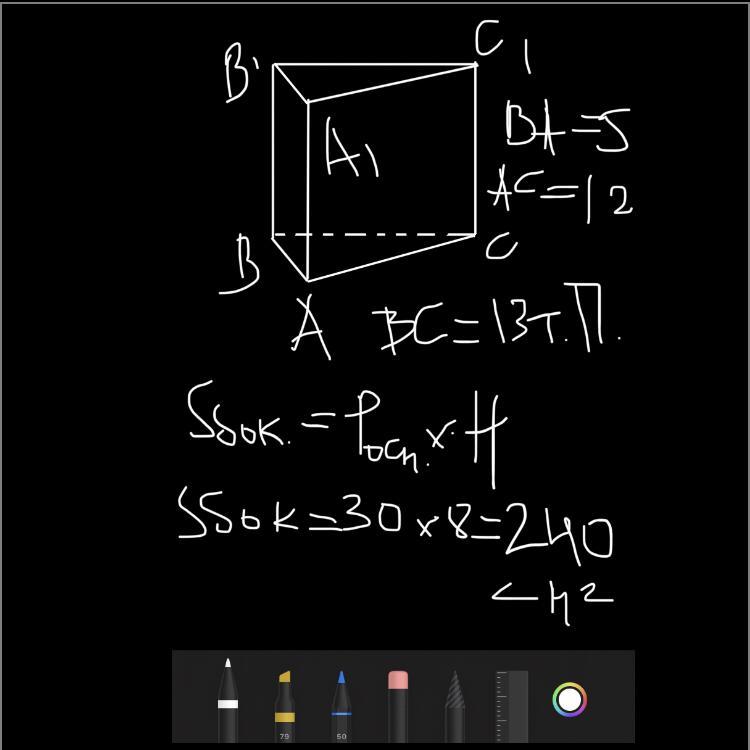 B' C1
A1 BA=5
AC=12
B C
A BC=13т.П.
Sбок.=Pосн.×H
Sбок=30×8=240
см2
79 50